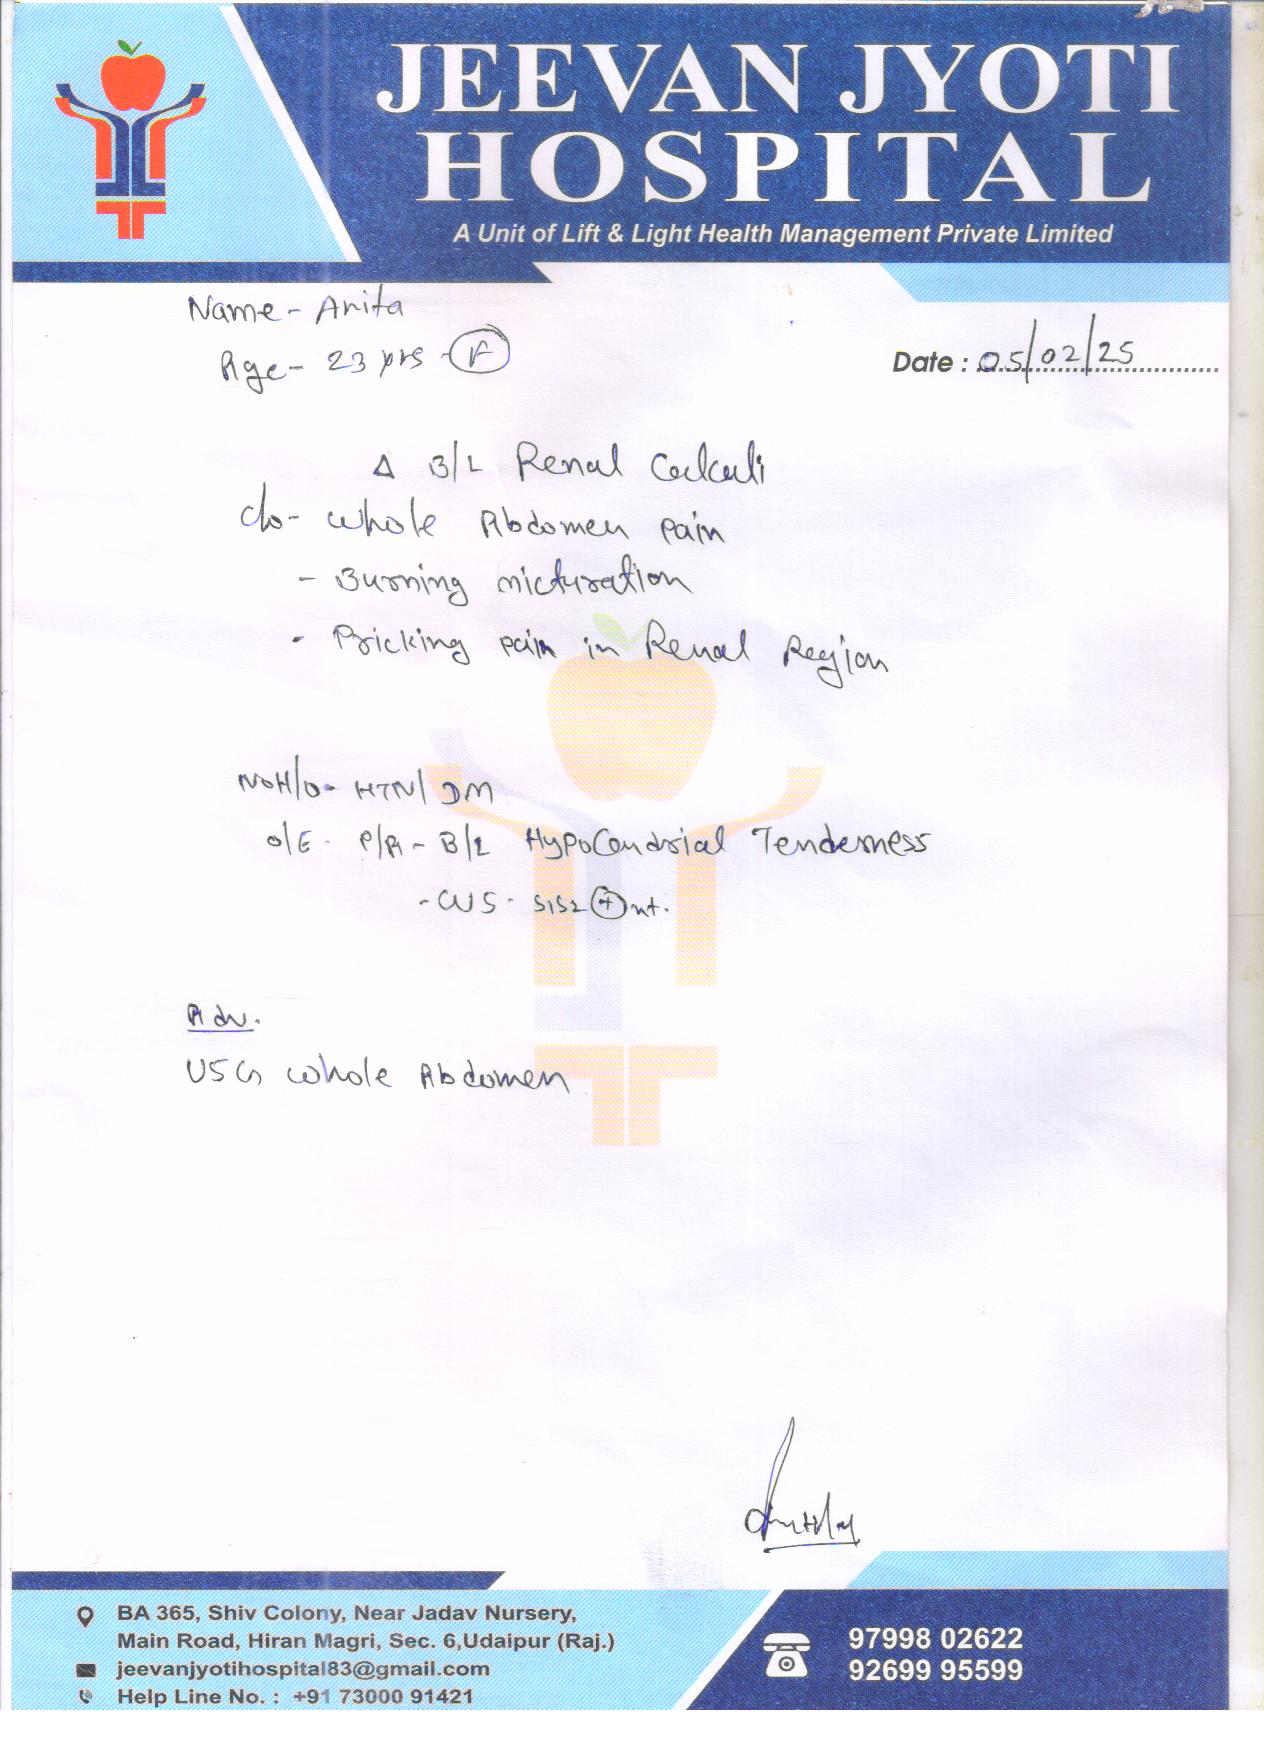 JEEVAN JYOTI
HOSPITAL
A Unit of Lift & Light Health Management Private Limited
Name - Anita
Age - 23 yrs - F
Date : 05/02/25
Δ B/L Renal Calculi
c/o - whole Abdomen pain
- Burning micturation
- Pricking pain in Renal Region
No H/o - HTN/DM
O/E - P/A - B/L HypoCondrial Tenderness
- CVS - S1S2 (+)nt.
Adv.
USG whole Abdomen
BA 365, Shiv Colony, Near Jadav Nursery,
Main Road, Hiran Magri, Sec. 6,Udaipur (Raj.)
jeevanjyotihospital83@gmail.com
Help Line No. : +91 73000 91421
97998 02622
92699 95599